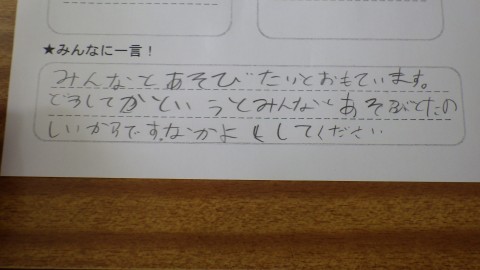 ★みんなに一言!
みんなとあそびたいとおもています。
どうしてかというとみんなとあそぶとたの
しいからです。なかよくしてください